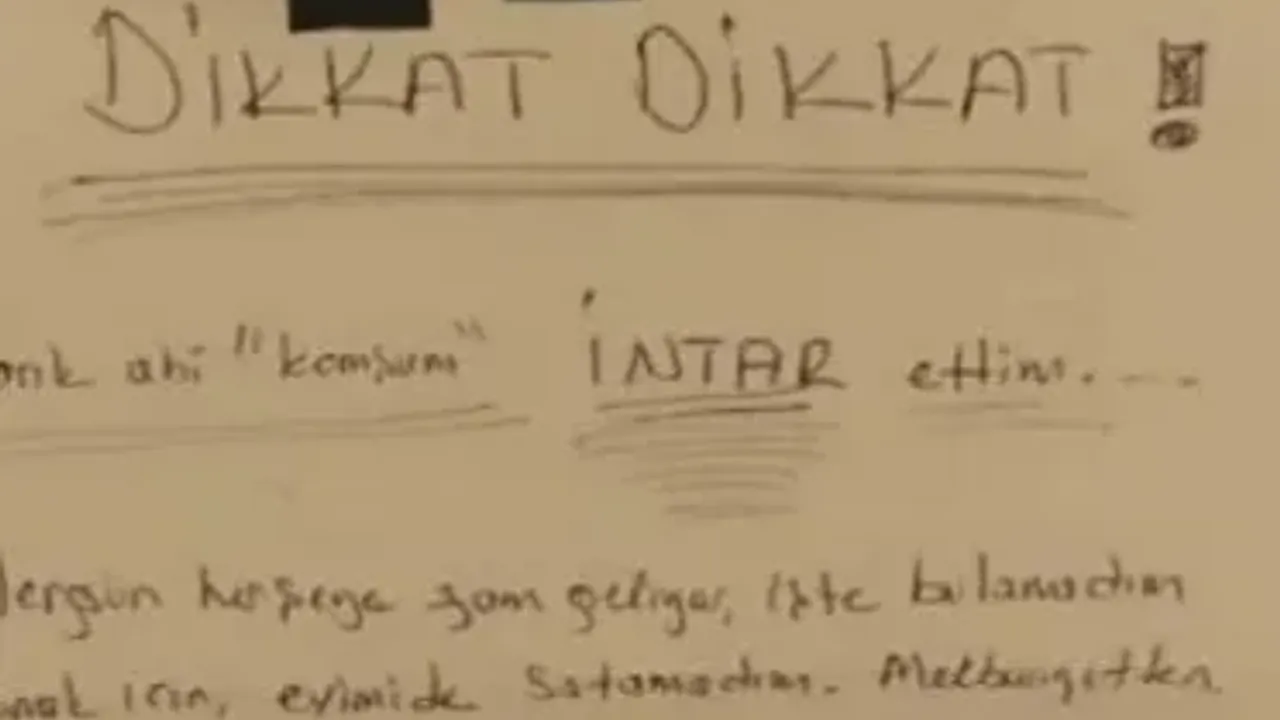 DİKKAT DİKKAT !
abi "komşum" İNTAR ettim. ...
Hergün herşeye zam geliyor, işte bulamadım
için, evimide Satamadım. Mecburiyetten